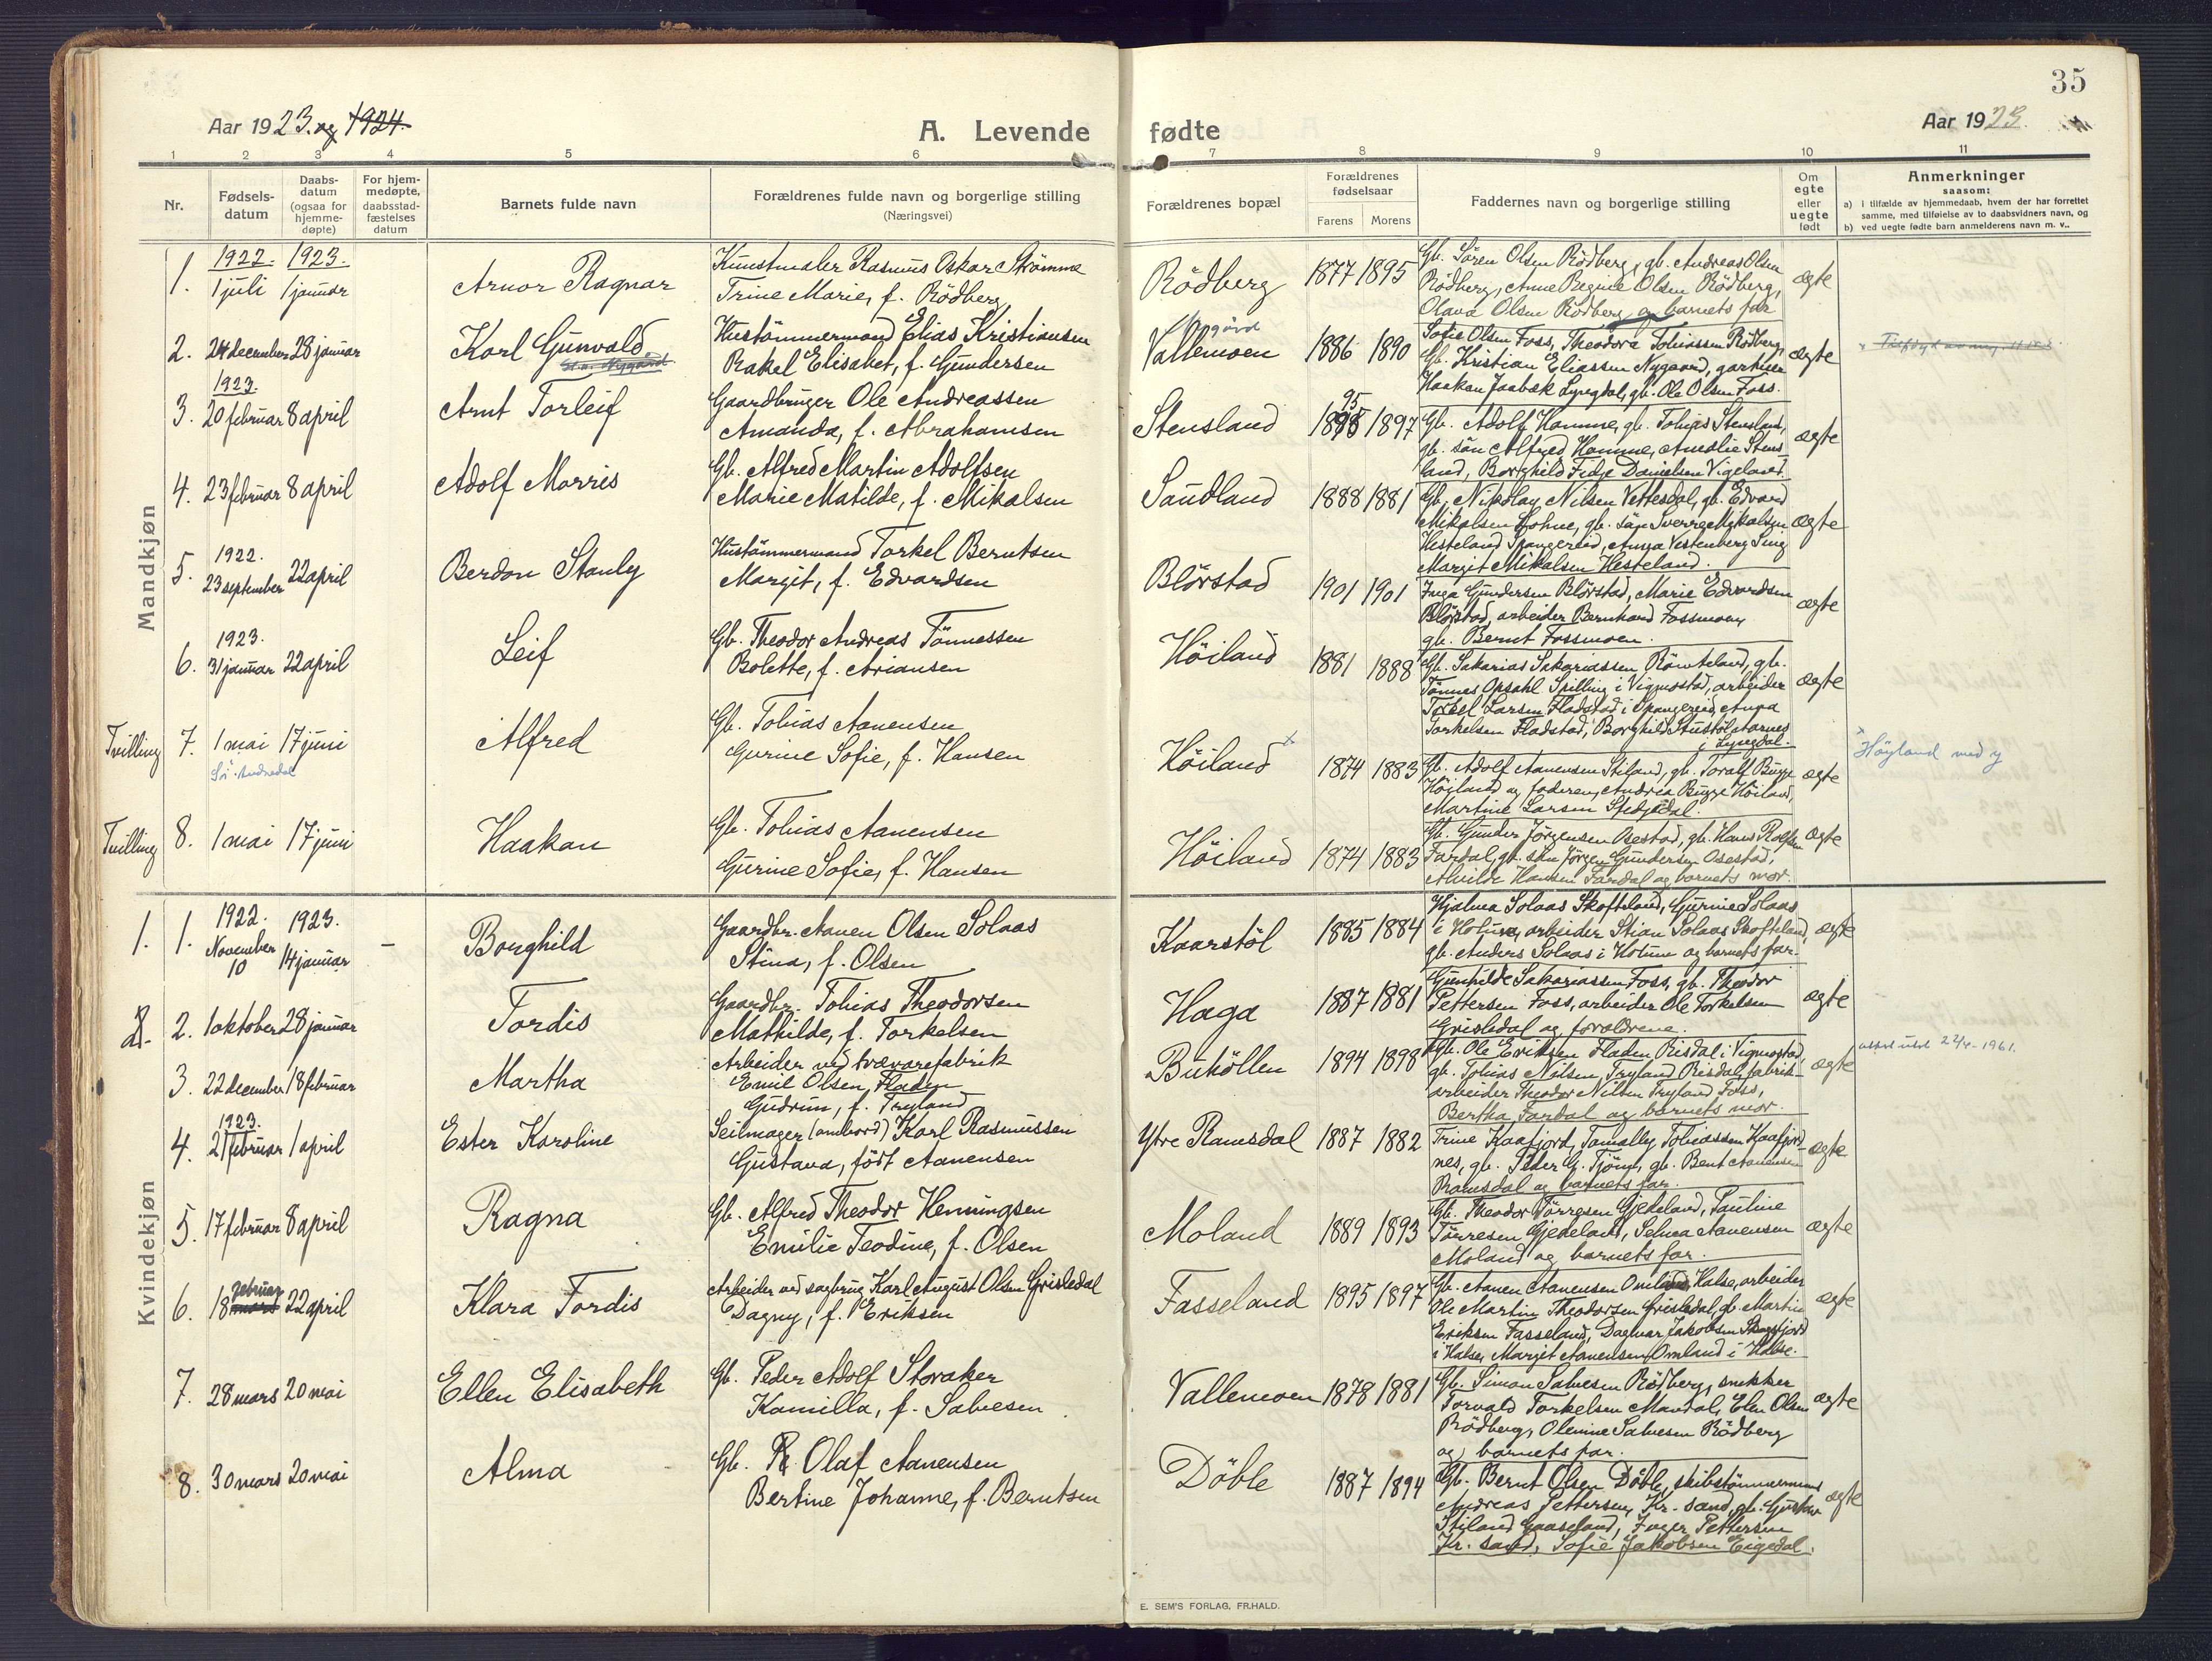 35
Aar 1923. og 1924.
A. Levende fødte
Aar 1923.
1 2 3 4 5 6 7 8 9 10 11
Nr.
Fødsels-
datum
Daabs-
datum
(ogsaa for
hjemme-
døpte)
For hjem-
medøpte,
daabsstad-
fæstelses
datum
Barnets fulde navn
Forældrenes fulde navn og borgerlige stilling
(Næringsvei)
Forældrenes bopæl
Forældrenes
fødselsaar
Farens Morens
Faddernes navn og borgerlige stilling
Om
egte
eller
uegte
født
Anmerkninger
saasom:
a) i tilfælde av hjemmedaab, hvem der har forrettet
samme, med tilføielse av to daabsvidners navn, og
b) ved uegte fødte barn anmelderens navn m. v..
Mandkjøn
1922. 1923.
1. 1 juli 1 januar Arnor Ragnar
Kunstmaler Rasmus Oskar Strömme
Trine Marie, f. Rödberg
Rödberg 1877 1895
Gb. Sören Olsen Rödberg, gb. Andreas Olsen
Rödberg, Anne Regine Olsen Rödberg,
Olava Olsen Rödberg og barnets far
ægte
2. 24 december 28 januar Karl Gunvald
Nygård
Hustömmermand Elias Kristiansen
Rakel Elisabet, f. Gundersen
Nygård
Vallemoen 1886 1890
Sofie Olsen Foss, Theodora Tobiassen Rödberg,
Gb. Kristian Eliassen Nygaard, gartner
Haakon Jaabæk Lyngdal, gb. Ole Olsen Foss.
ægte
1923.
3. 20 februar 8 april Arnt Torleif
Gaardbruger Ole Andreassen
Amanda, f. Abrahamsen
Stensland 95 1897
Gb. Adolf Homme, gb. Tobias Stensland,
gb. sön Alfred Homme, Amalie Stens
land, Borghild Fidje Danielsen Vigeland.
ægte
4. 23 februar 8 april Adolf Morris
Gb. Alfred Martin Adolfsen
Marie Matilde, f. Mikalsen
Saudland 1888 1881
Gb. Nikolay Nilsen Vettesdal, gb. Edvard
Mikalsen Lohne, gb. sön Sverre Mikalsen
Hesteland Spangereid, Anna Vestenberg
Margit Mikalsen Hesteland.
ægte
1922.
5. 23 september 22 april Berdon Stanly
Hustömmermand Torkel Berntsen
Margit, f. Edvardsen
Blörstad 1901 1901
Inga Gundersen Blörstad, Marie Edvardsen
Blörstad, arbeider Bernhard Fossmoen,
gb. Bernt Fossmoen.
ægte
1923.
6. 31 januar 22 april Leif
Gb. Theodor Andreas Tönnessen
Bolette, f. Ariansen
Höiland 1881 1888
Gb. Sakarias Sakariassen Römteland, gb.
Tönnes Opsahl Spilling i Vigmostad, arbeider
Torkel Larsen Fladstad i Spangereid, Anna
Torkelsen Fladstad, Borghild
i Lyngdal.
ægte
Tvilling 7. 1 mai 17 juni Alfred
Gb. Tobias Aanensen
Gurine Sofie, f. Hansen
Höiland x 1874 1883
Gb. Adolf Aanensen Stiland, gb. Toralf Bugge
Höiland og faderen, Andrea Bugge Höiland,
Martine Larsen
ægte
x Höyland med y
Tvilling 8. 1 mai 17 juni Haakon
Gb. Tobias Aanensen
Gurine Sofie, f. Hansen
Höiland 1874 1883
Gb. Gunder Jörgensen Osestad, gb. Hans Rolfsen
Fardal, gb. sön Jörgen Gundersen Osestad,
Alvilde Hansen Fardal og barnets mor.
ægte
Kvindekjøn
1922. 1923.
1. 1. November 10 14 januar – Borghild
Gaardbr. Aanen Olsen Solaas
Stina, f. Olsen
Kaarstöl 1885 1884
Hjalma Solaas Skofteland, Gurine Solaas
i Holum, arbeider Stian Solaas Skofteland,
gb. Anders Solaas i Holum og barnets far.
ægte
2. 2. 1 oktober 28 januar Tordis
Gaardbr. Tobias Theodorsen
Mathilde, f. Torkelsen
Haga 1887 1881
Gunhilde Sakariassen Foss, gb. Theodor
Pettersen Foss, arbeider Ole Torkelsen
Grisledal og forældrene.
ægte
3. 22 december 18 februar Martha
Arbeider ved trævarefabrik
Emil Olsen, Fladen
Gudrun, f. Tryland
Buhöllen 1894 1898
Gb. Ole Eriksen Fladen Risdal i Vigmostad,
gb. Tobias Nilsen, Tryland Risdal, fabrik-
arbeider Theodor Nilsen Tryland Foss,
Bertha Fardal og barnets mor.
ægte
attest utst 22/4-1961.
1923.
4. 21 februar 1 april Ester Karoline
Seilmager (ombord) Karl Rasmussen
Gustava, født Aanensen
Ytre Ramsdal 1887 1882
Trine Kaafjord, Tomally Tobiassen Kaafjord
nes, gb. Peder G. Tjöm, gb. Bent Aanensen
Ramsdal og barnets far.
ægte
5. 17 februar 8 april Ragna
Gb. Alfred Theodor Henningsen
Emilie Teodine, f. Olsen
Moland 1889 1893
Gb. Theodor Törresen Gjedeland, Pauline
Törresen Gjedeland, Selma Aanensen
Moland og barnets far.
ægte
6. 18 februar 22 april Klara Tordis
Arbeider ved sagbrug Karl August Olsen Grisledal
Dagny, f. Eriksen
Fasseland 1895 1897
Gb. Aanen Aanensen Omland Halse, arbeider
Ole Martin Theodorsen Grisledal, gb. Martin
Eriksen Fasseland, Dagmar Jakobsen
i Halse, Margit Aanensen Omland i Halse.
ægte
7. 28 mars 20 mai Ellen Elisabeth
Gb. Peder Adolf Storaker
Kamilla, f. Salvesen
Vallemoen 1878 1881
Gb. Simon Salvesen Rödberg, snekker
Torvald Torkelsen Mandal, Elen Olsen
Rödberg, Olemine Salvesen Rödberg
og barnets far.
ægte
8. 30 mars 20 mai Alma
Gb. Olaf Aanensen
Bertine Johanne, f. Berntsen
Döble 1887 1894
Gb. Bernt Olsen Döble, skibstömmermand
Andreas Pettersen, Kr. sand, gb. Gustav
Stiland Gaaseland, Inger Pettersen
Kr. sand, Sofie Jakobsen Eigedal.
ægte
E. SEM'S FORLAG, FR.HALD.